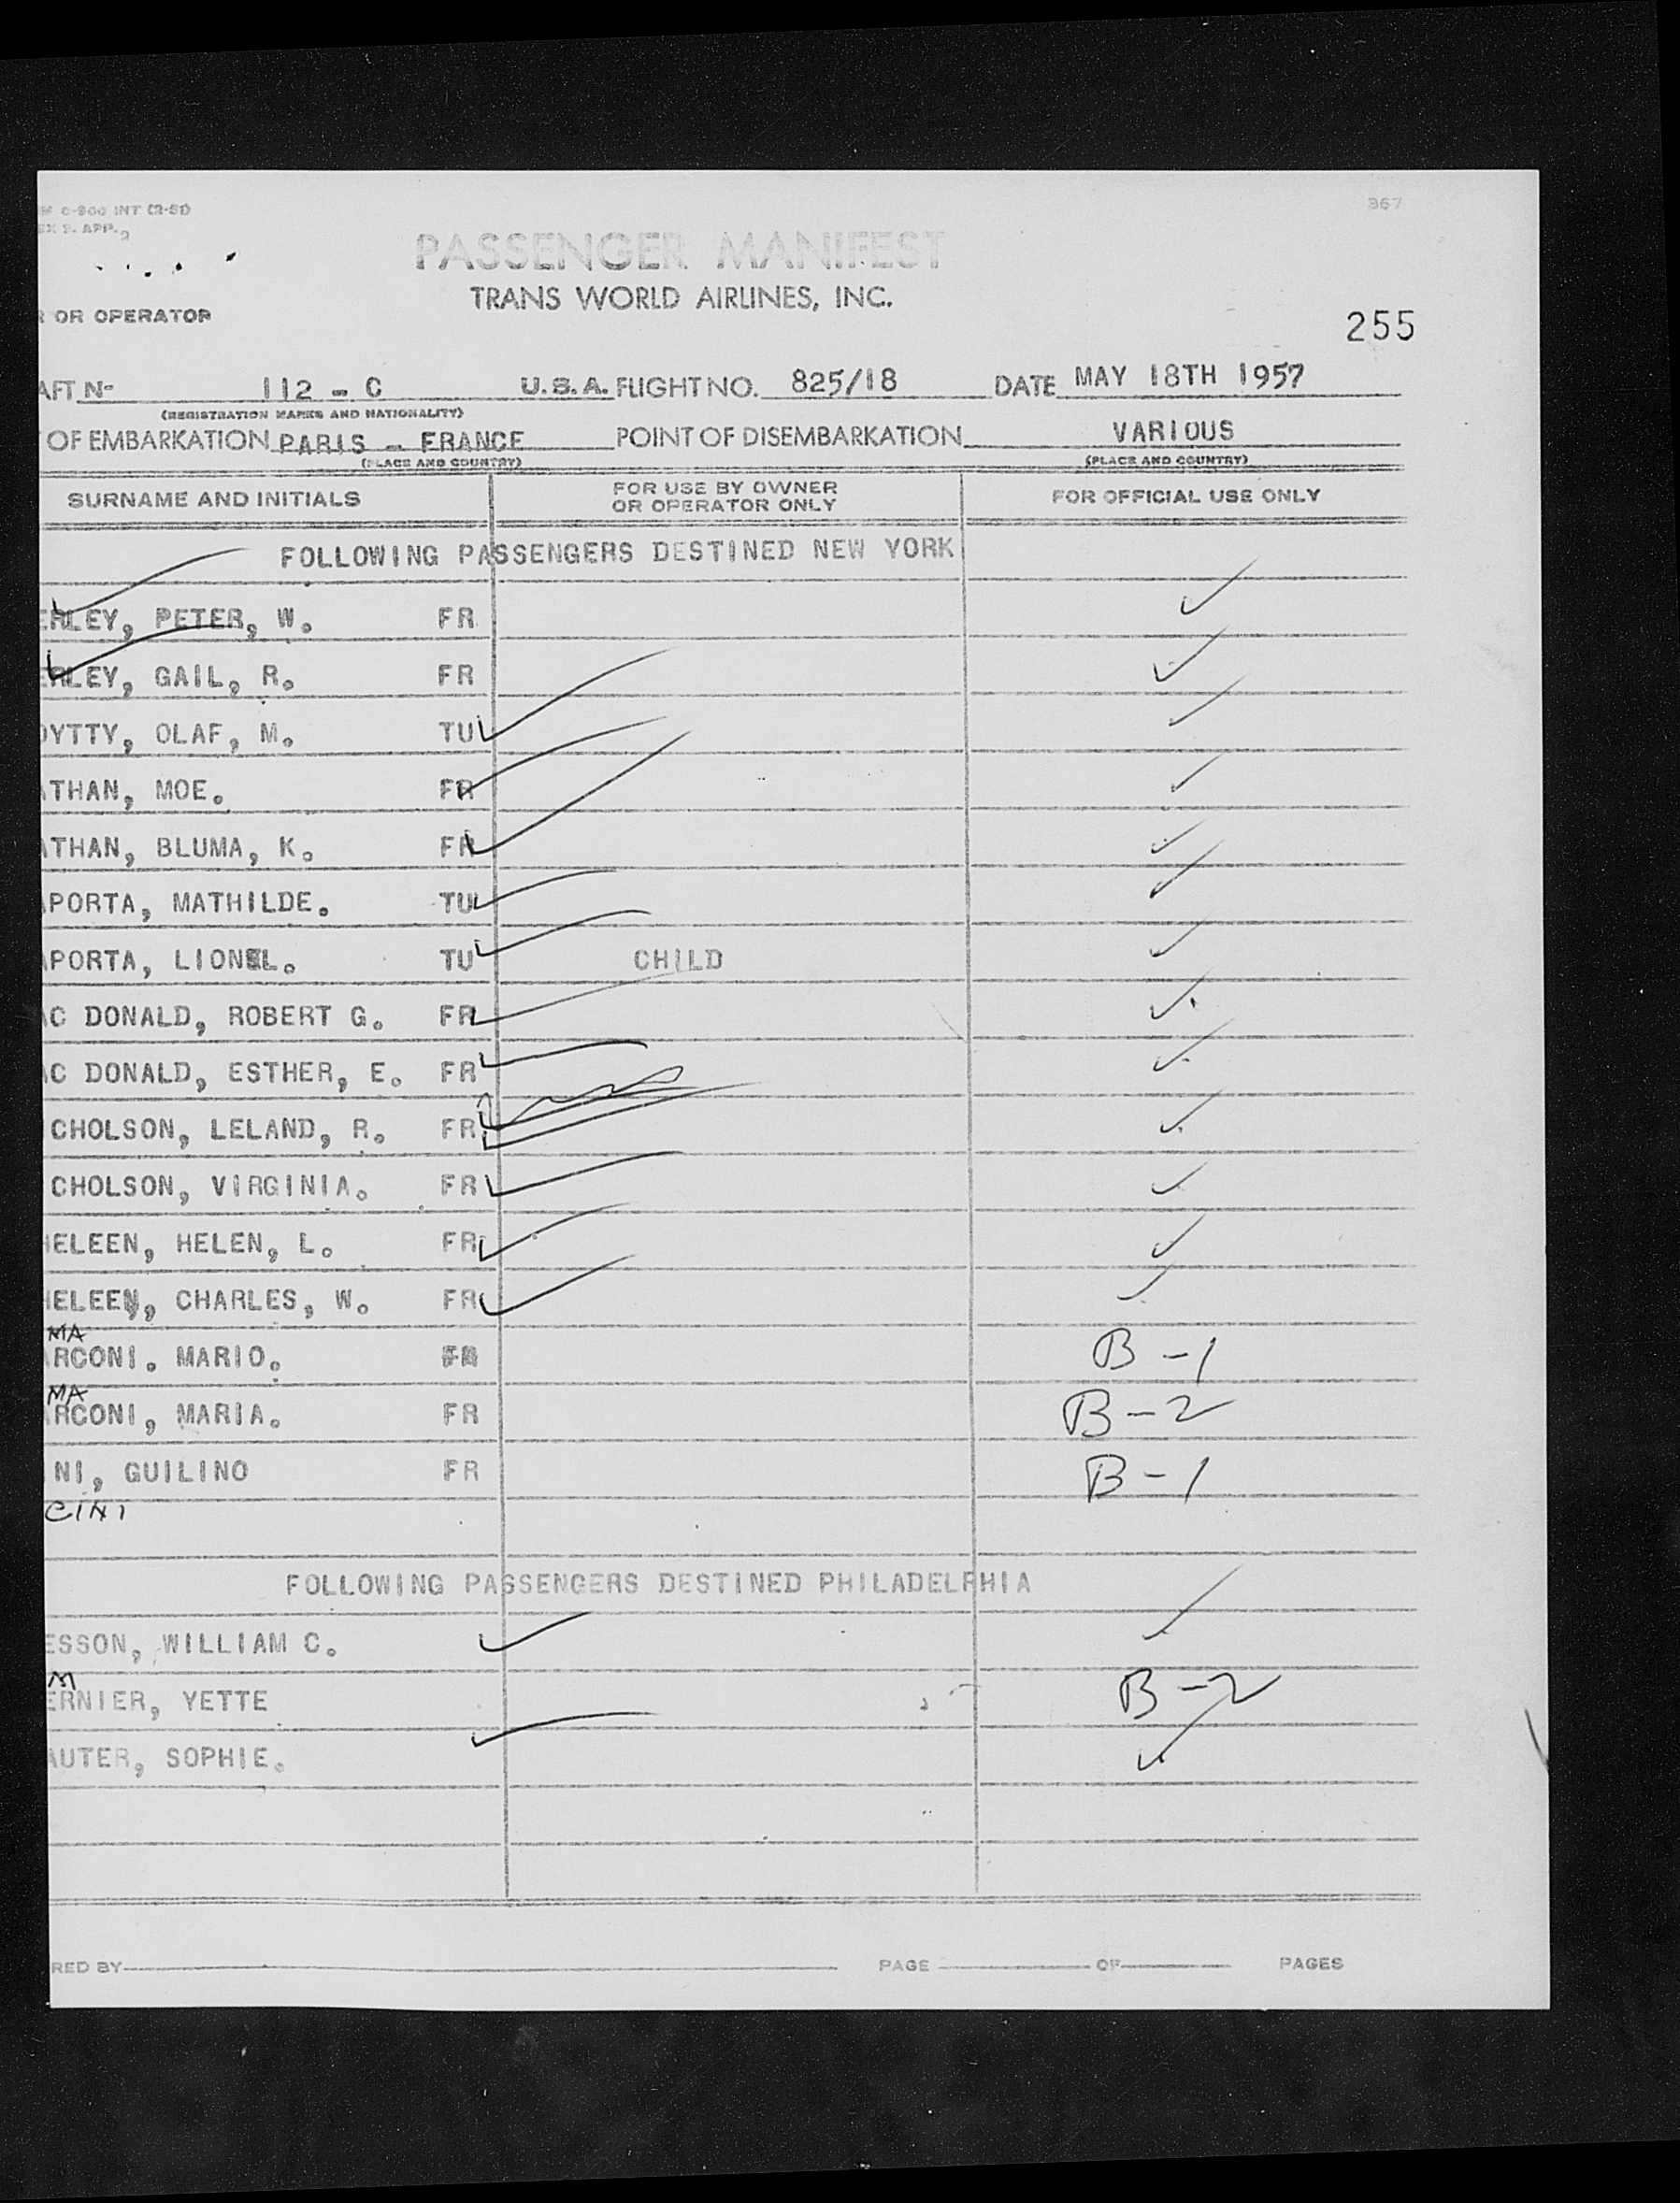 C-900 INT (2-51)
867
EX 9. APP. 2
PASSENGER MANIFEST
TRANS WORLD AIRLINES, INC.
OR OPERATOR
255
AFT Nº 112 - C U.S.A. FLIGHT NO. 825/18 DATE MAY 18TH 1957
(REGISTRATION MARKS AND NATIONALITY)
OF EMBARKATION PARIS - FRANCE POINT OF DISEMBARKATION VARIOUS
(PLACE AND COUNTRY) (PLACE AND COUNTRY)
SURNAME AND INITIALS FOR USE BY OWNER OR OPERATOR ONLY FOR OFFICIAL USE ONLY
FOLLOWING PASSENGERS DESTINED NEW YORK
ERLEY, PETER, W. FR
ERLEY, GAIL, R. FR
OYTTY, OLAF, M. TU
ATHAN, MOE. FR
ATHAN, BLUMA, K. FR
APORTA, MATHILDE. TU
APORTA, LIONEL. TU CHILD
AC DONALD, ROBERT G. FR
AC DONALD, ESTHER, E. FR
CHOLSON, LELAND, R. FR
CHOLSON, VIRGINIA. FR
HELEEN, HELEN, L. FR
HELEEN, CHARLES, W. FR
MA
ARCONI. MARIO. FR B-1
MA
ARCONI, MARIA. FR B-2
NI, GUILINO FR B-1
CINI
FOLLOWING PASSENGERS DESTINED PHILADELPHIA
ESSON, WILLIAM C.
M
ERNIER, YETTE B-2
AUTER, SOPHIE.
RED BY PAGE OF PAGES